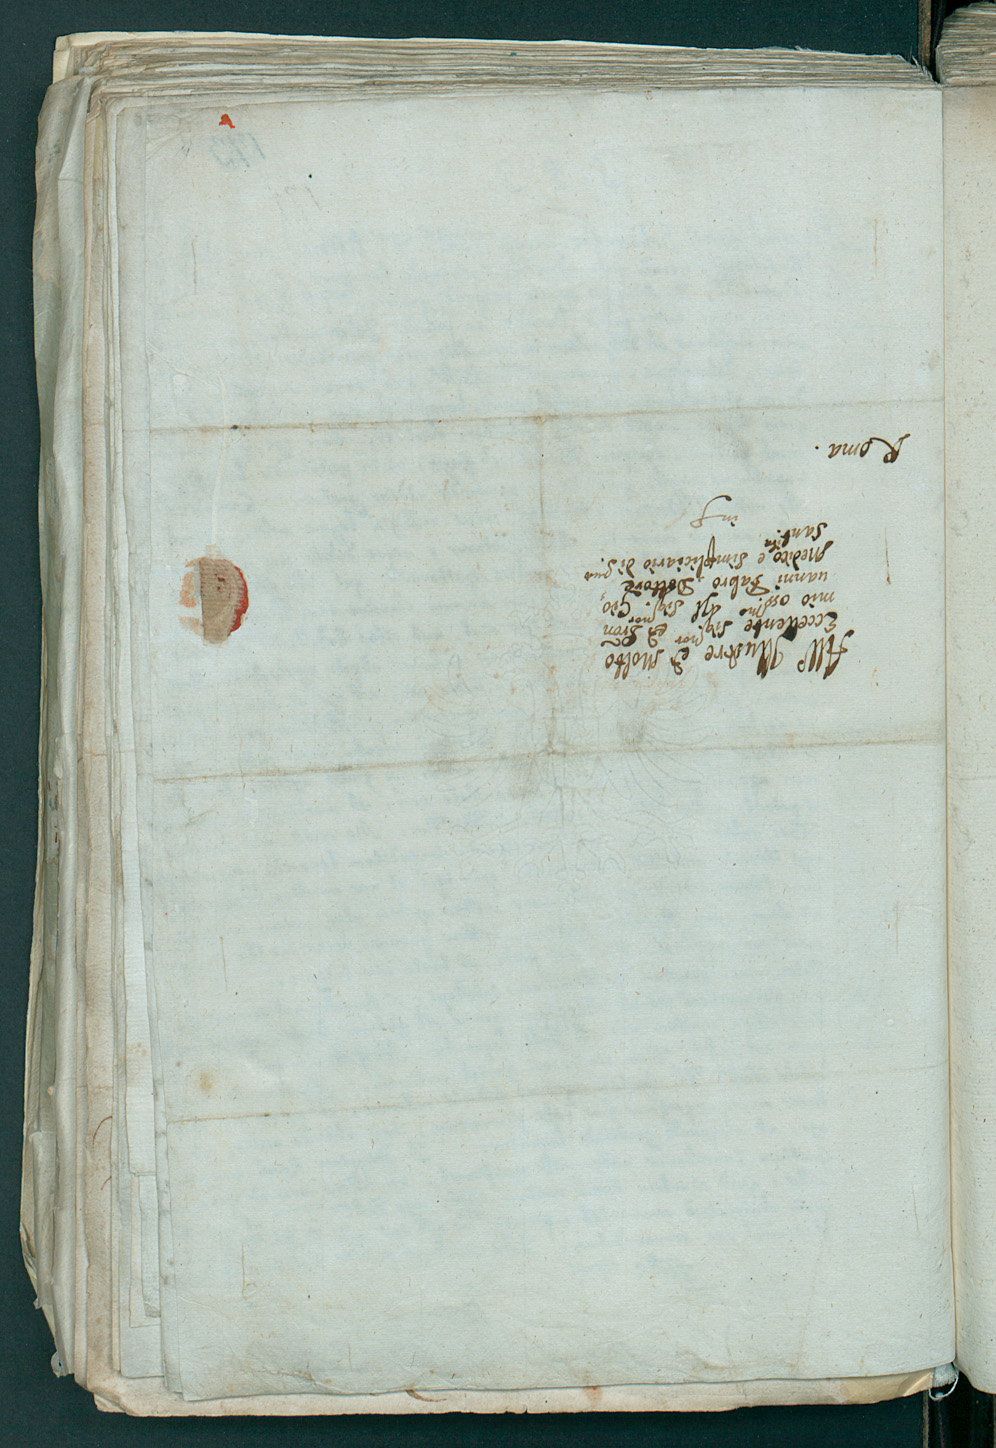 All' Illustre et Molto
Eccellente Sig.nor et Pron
mio oss.mo Il Sig.nor Gio,
uanni Fabro Dottore
Medico, e Simpliciario di Sua
Santità.
in
Roma.